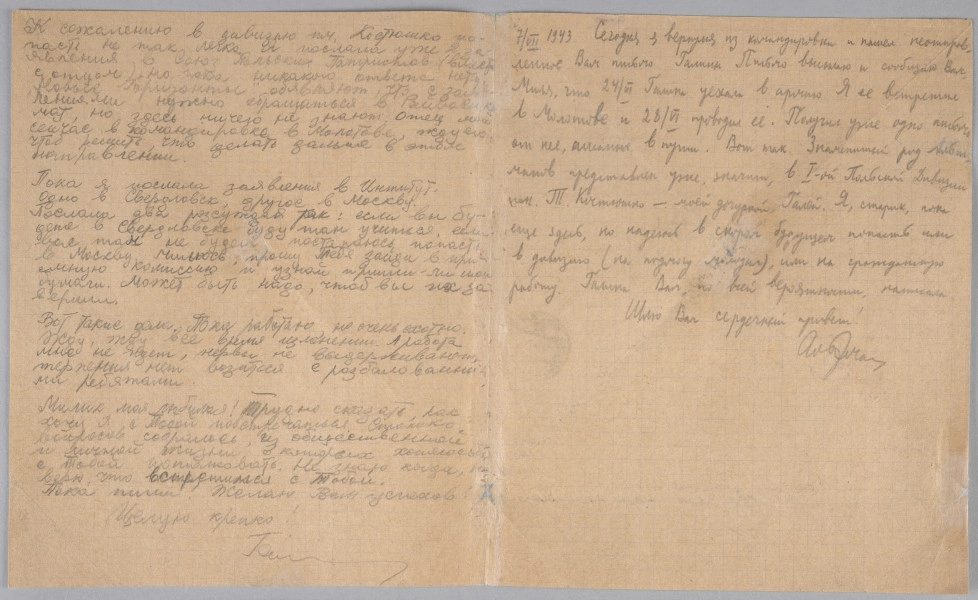 К сожалению в дивизию им. Костюшко по-
пасть не так легко. Я послала уже 2 за-
явления в Союз Польских Патриотов (вместе
с отцом), но пока никакого ответа нет.
обращаться в
но здесь ничего не знают, отец мой
сейчас в командировке в Молотове, жду его,
чтоб решить что делать дальше в этом
направлении.
Пока я послала заявления в Институт.
Одно в Свердловск, другое в Москву.
Послала два, рассуждая так: если вы бу-
дете в Свердловске буду там учиться, если
вас там не будет постараюсь попасть
в Москву. Милюсь, прошу Тебя зайди в при-
емную комиссию и узнай пришли-ли мои
бумаги. Может быть надо, чтоб вы
Вот такие дела. Пока работаю, не очень охотно.
Жду, жду всё время А работа
мне не идет, нервы не выдерживают,
терпения нет возиться с разбалованны-
ми ребятами.
Милик моя любимая! Трудно сказать, как
хочу я с Тобой повстречаться. Столько
вопросов собралось, из общественной
и личной жизни, о которых хотелось
с Тобой Не знаю когда, но
верю, что встретимся с Тобой.
Пока пиши! Желаю Вам успехов!
Целую крепко!
7/VII 1943 Сегодня я вернулся из командировки и нашел неотправ-
ленное Вам письмо Галины Письмо высылаю и сообщаю Вам,
Миля, что 24/VI Галина уехала в армию Я её встретил
в Молотове и 28/VI проводил её. Получил уже одно письмо
от неё, писанное в пути. Вот так. Знаменитый род
представлен уже, значит, в I-ой Польской Дивизии
им. Т. Костюшко — моей дочуркой Галей. Я, старик, пока
еще здесь, но надеюсь в скором будущем попасть или
в дивизию (на подмогу ), или на гражданскую
работу. Галина Вам, по всей вероятности, написала
Шлю Вам сердечный привет!